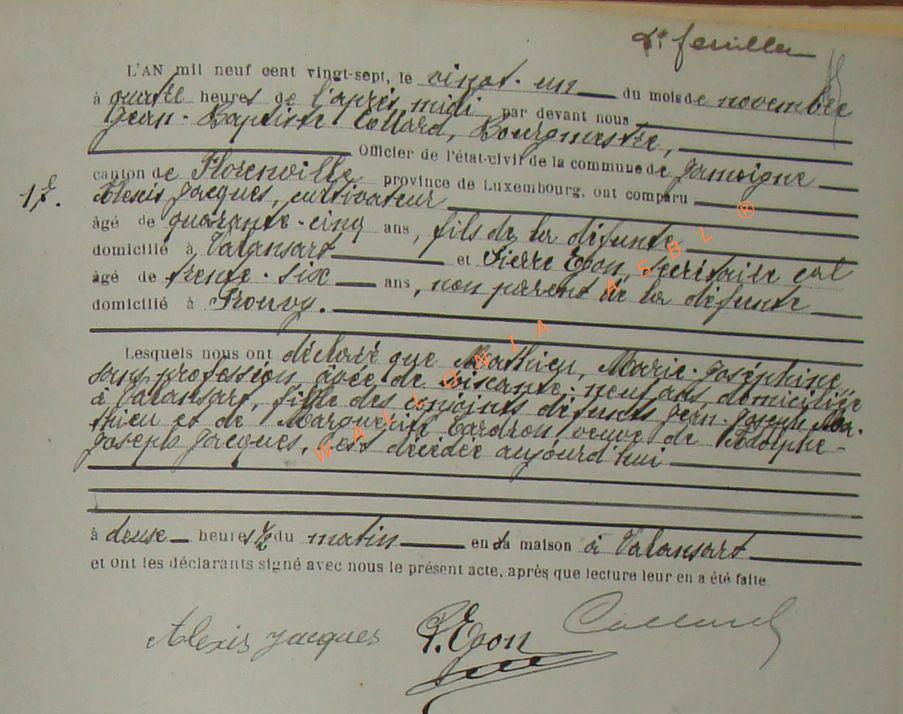 2e feuillet
L'AN mil neuf cent vingt-sept, le vingt-un du mois de novembre
à quatre heures de l'après midi par devant nous
Jean-Baptiste Collard, Bourgmestre,
Officier de l'état-civil de la commune de Jamoigne
canton de Florenville province de Luxembourg, ont comparu
17. Alexis Jacques, cultivateur
âgé de quarante-cinq ans, fils de la défunte
domicilié à Valansart et Pierre Egon, secrétaire cal
âgé de trente-six ans, non parent de la défunte
domicilié à Prouvy.
Lesquels nous ont déclaré que Mathieu, Marie-Joséphine,
sans profession, âgée de soixante-neuf ans, domiciliée
à Valansart, fille des conjoints défunts Jean-Joseph Ma-
thieu et de Marguerite Cardron, veuve de Adolphe-
Joseph Jacques, est décédée aujourd'hui
à deux heures ½ du matin en sa maison à Valansart
et ont les déclarants signé avec nous le présent acte, après que lecture leur en a été faite.
Alexis Jacques P. Egon Collard
WALLONIA ASBL ®